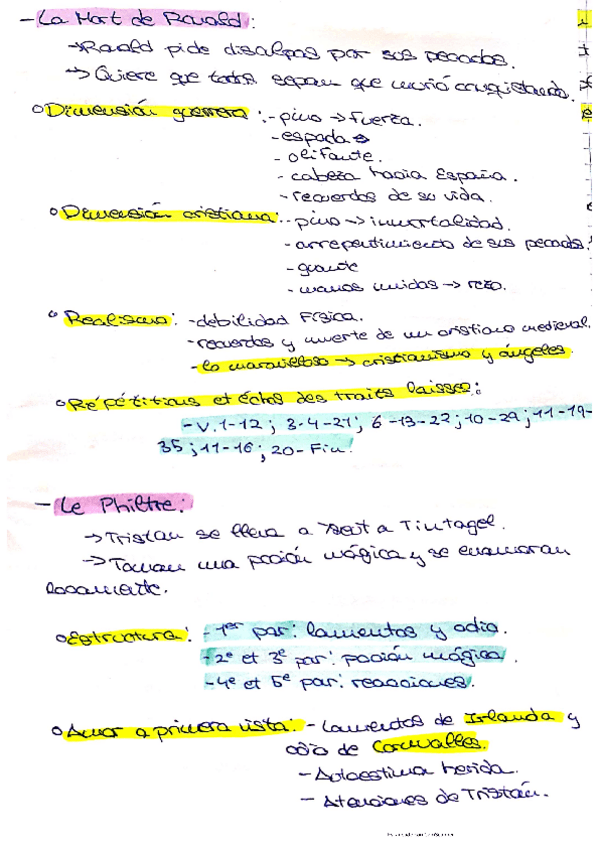 - La Mort de Roland:
→ Roland pide disculpas por sus pecados.
→ Quiere que todos sepan que murió conquistando.
o Dimensión guerrera: - pino → fuerza.
- espada
- olifante.
- cabeza hacia España.
- recuerdos de su vida.
o Dimensión cristiana: - pino → inmortalidad.
- arrepentimiento de sus pecados.
- guante
- manos unidas → rezo.
o Realismo: - debilidad física.
- recuerdos y muerte de un cristiano medieval.
- lo maravilloso → cristianismo y ángeles.
o Répétitions et échos des traits laisses:
- v. 1-12; 3-4-21; 6-13-22; 10-29; 11-19-
35; 11-16; 20-Fin.
- Le Philtre:
→ Tristan se lleva a Iseut a Tintagel.
→ Toman una poción mágica y se enamoran
locamente.
o Estructura: - 1er par: lamentos y odio.
- 2e et 3e par: poción mágica.
- 4e et 5e par: reacciones.
o Amor a primera vista: - Lamentos de Irlanda y
odio de Cornualles.
- Autoestima herida.
- Atenciones de Tristán.